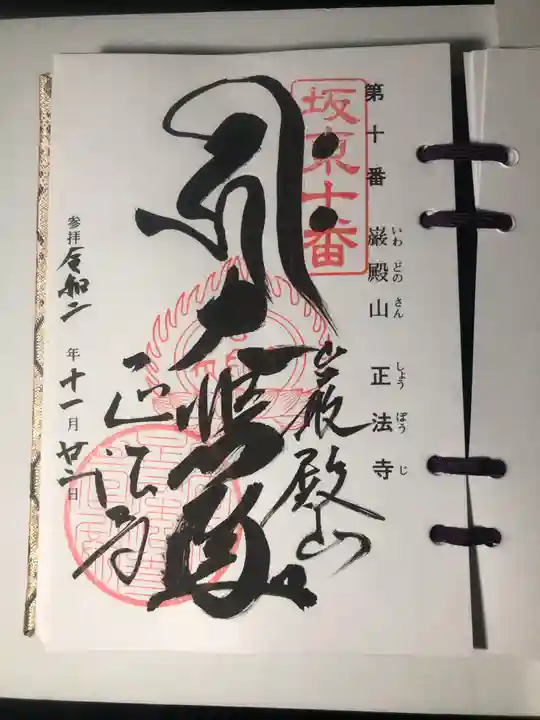 第十番 巌殿山 正法寺
いわ どの さん しょう ぼう じ
坂東十番
巌殿山
大悲殿
正法寺
参拝 令和二年十一月廿二日